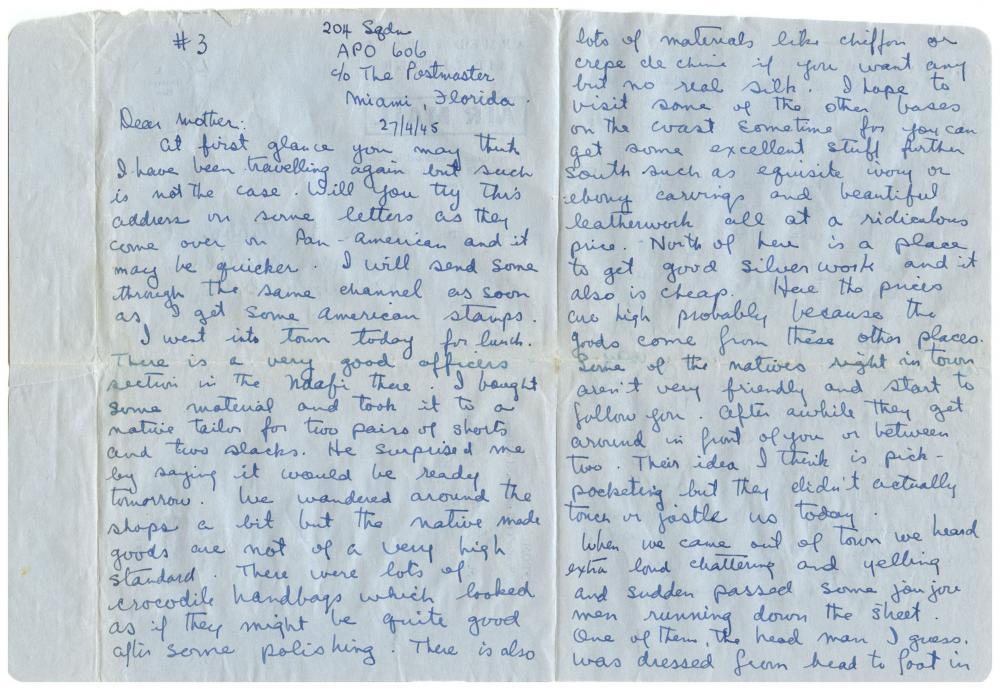 #3
204 Sqdn
APO 606
c/o The Postmaster
Miami, Florida.
27/4/45
Dear Mother:
At first glance you may think
I have been travelling again but such
is not the case. Will you try this
address on some letters as they
come over on Pan-American and it
may be quicker. I will send some
through the same channel as soon
as I get some American stamps.
I went into town today for lunch.
There is a very good officers
section in the Naafi there. I bought
some material and took it to a
native tailor for two pairs of shorts
and two slacks. He surprised me
by saying it would be ready
tomorrow. We wandered around the
shops a bit but the native made
goods are not of a very high
standard. There were lots of
crocodile handbags which looked
as if they might be quite good
after some polishing. There is also
lots of materials like chiffon or
crepe de chine if you want any
but no real silk. I hope to
visit some of the other bases
on the coast sometime for you can
get some excellent stuff further
south such as equisite ivory or
ebony carvings and beautiful
leatherwork all at a ridiculous
price. North of here is a place
to get good silver work and it
also is cheap. Here the prices
are high probably because the
goods come from these other places.
Some of the natives right in town
aren't very friendly and start to
follow you. After awhile they get
around in front of you or between
two. Their idea I think is pick-
pocketing but they didn't actually
touch or jostle us today.
When we came out of town we heard
extra loud chattering and yelling
and sudden passed some jou jou
men running down the street.
One of them, the head man I guess,
was dressed from head to foot in